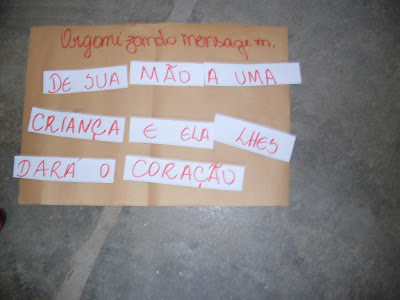 Organizando mensagem.
DE SUA MÃO A UMA
CRIANÇA E ELA LHES
DARÁ O CORAÇÃO